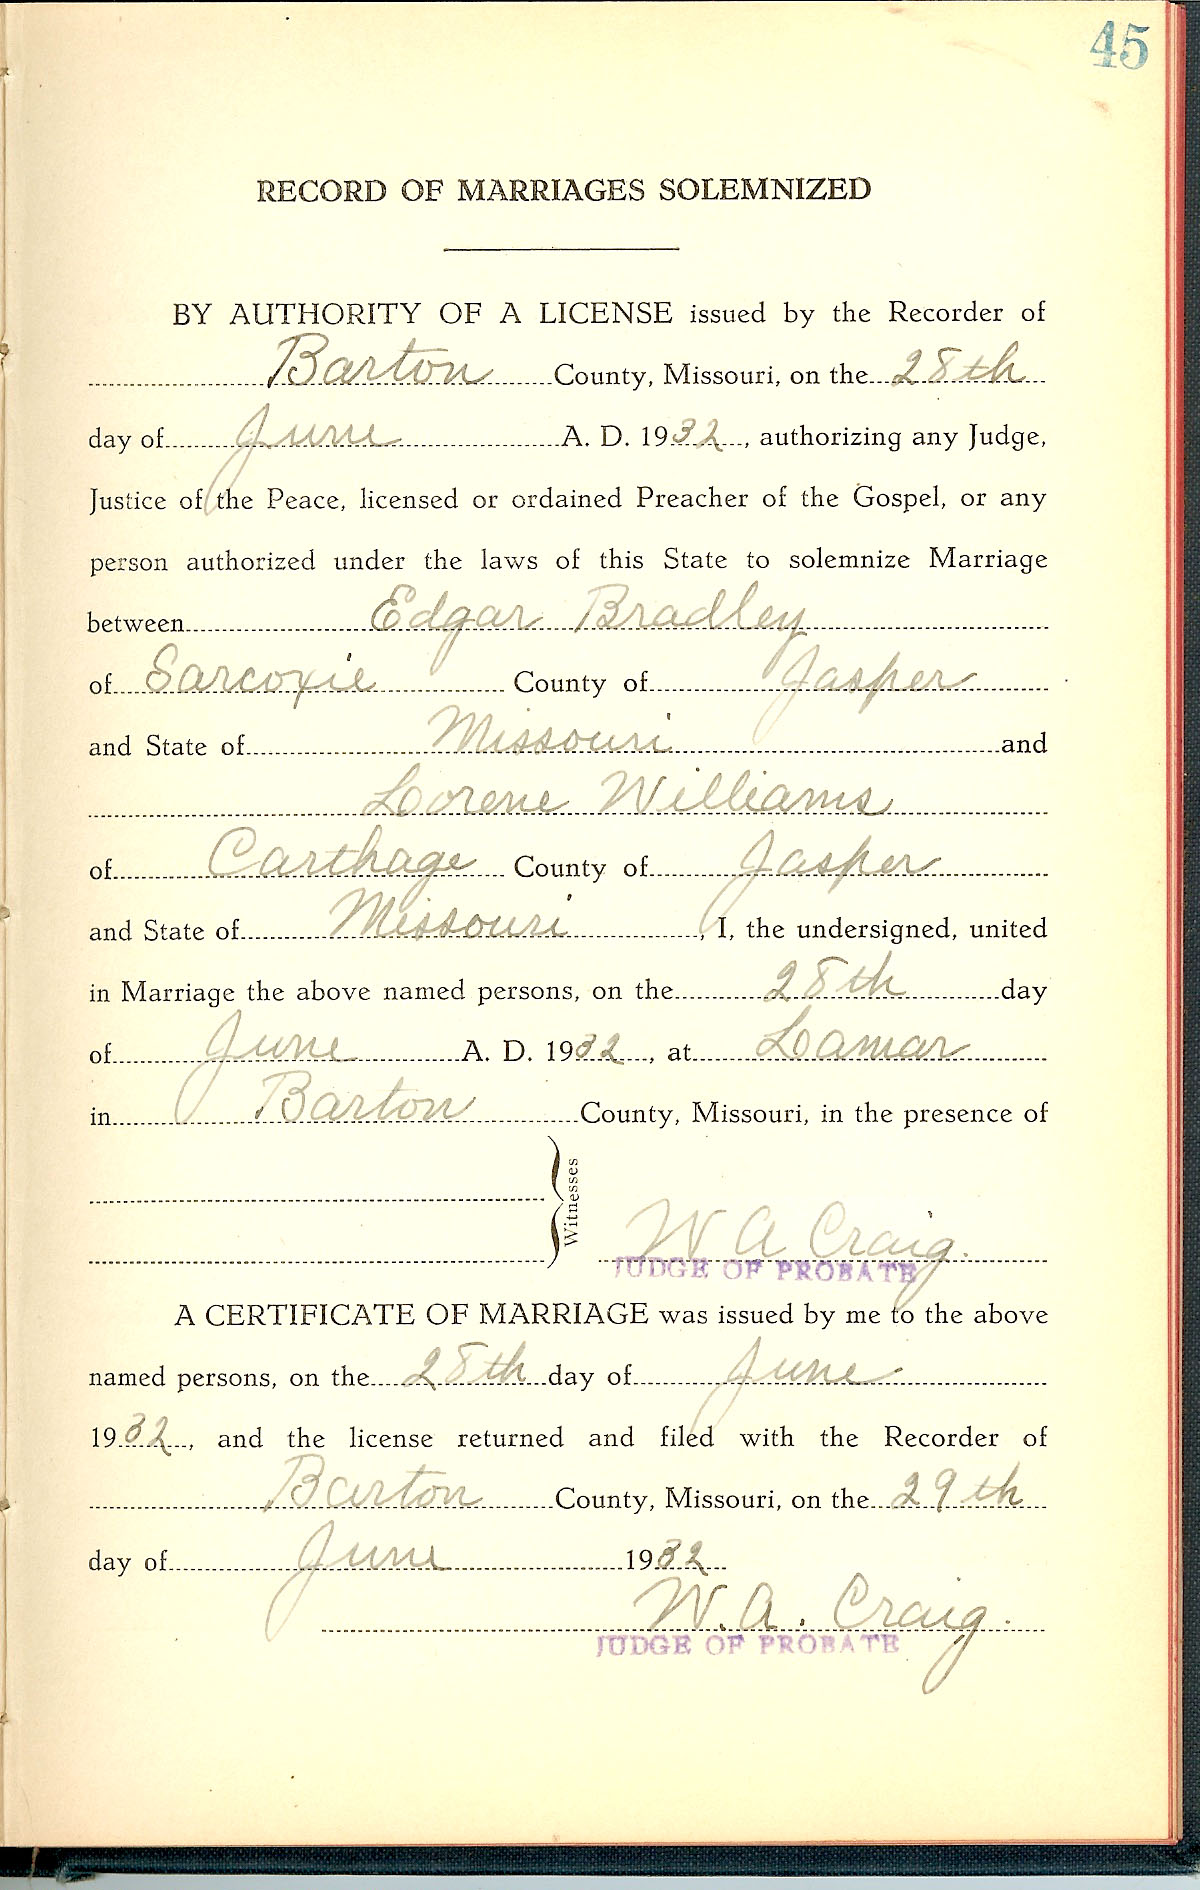 45
RECORD OF MARRIAGES SOLEMNIZED
BY AUTHORITY OF A LICENSE issued by the Recorder of
Barton County, Missouri, on the 28th
day of June A. D. 1932, authorizing any Judge,
Justice of the Peace, licensed or ordained Preacher of the Gospel, or any
person authorized under the laws of this State to solemnize Marriage
between Edgar Bradley
of Sarcoxie County of Jasper
and State of Missouri and
Lorene Williams
of Carthage County of Jasper
and State of Missouri, I, the undersigned, united
in Marriage the above named persons, on the 28th day
of June A. D. 1932, at Lamar
in Barton County, Missouri, in the presence of
Witnesses
W A Craig.
JUDGE OF PROBATE
A CERTIFICATE OF MARRIAGE was issued by me to the above
named persons, on the 28th day of June
1932, and the license returned and filed with the Recorder of
Barton County, Missouri, on the 29th
day of June 1932
W. A. Craig.
JUDGE OF PROBATE